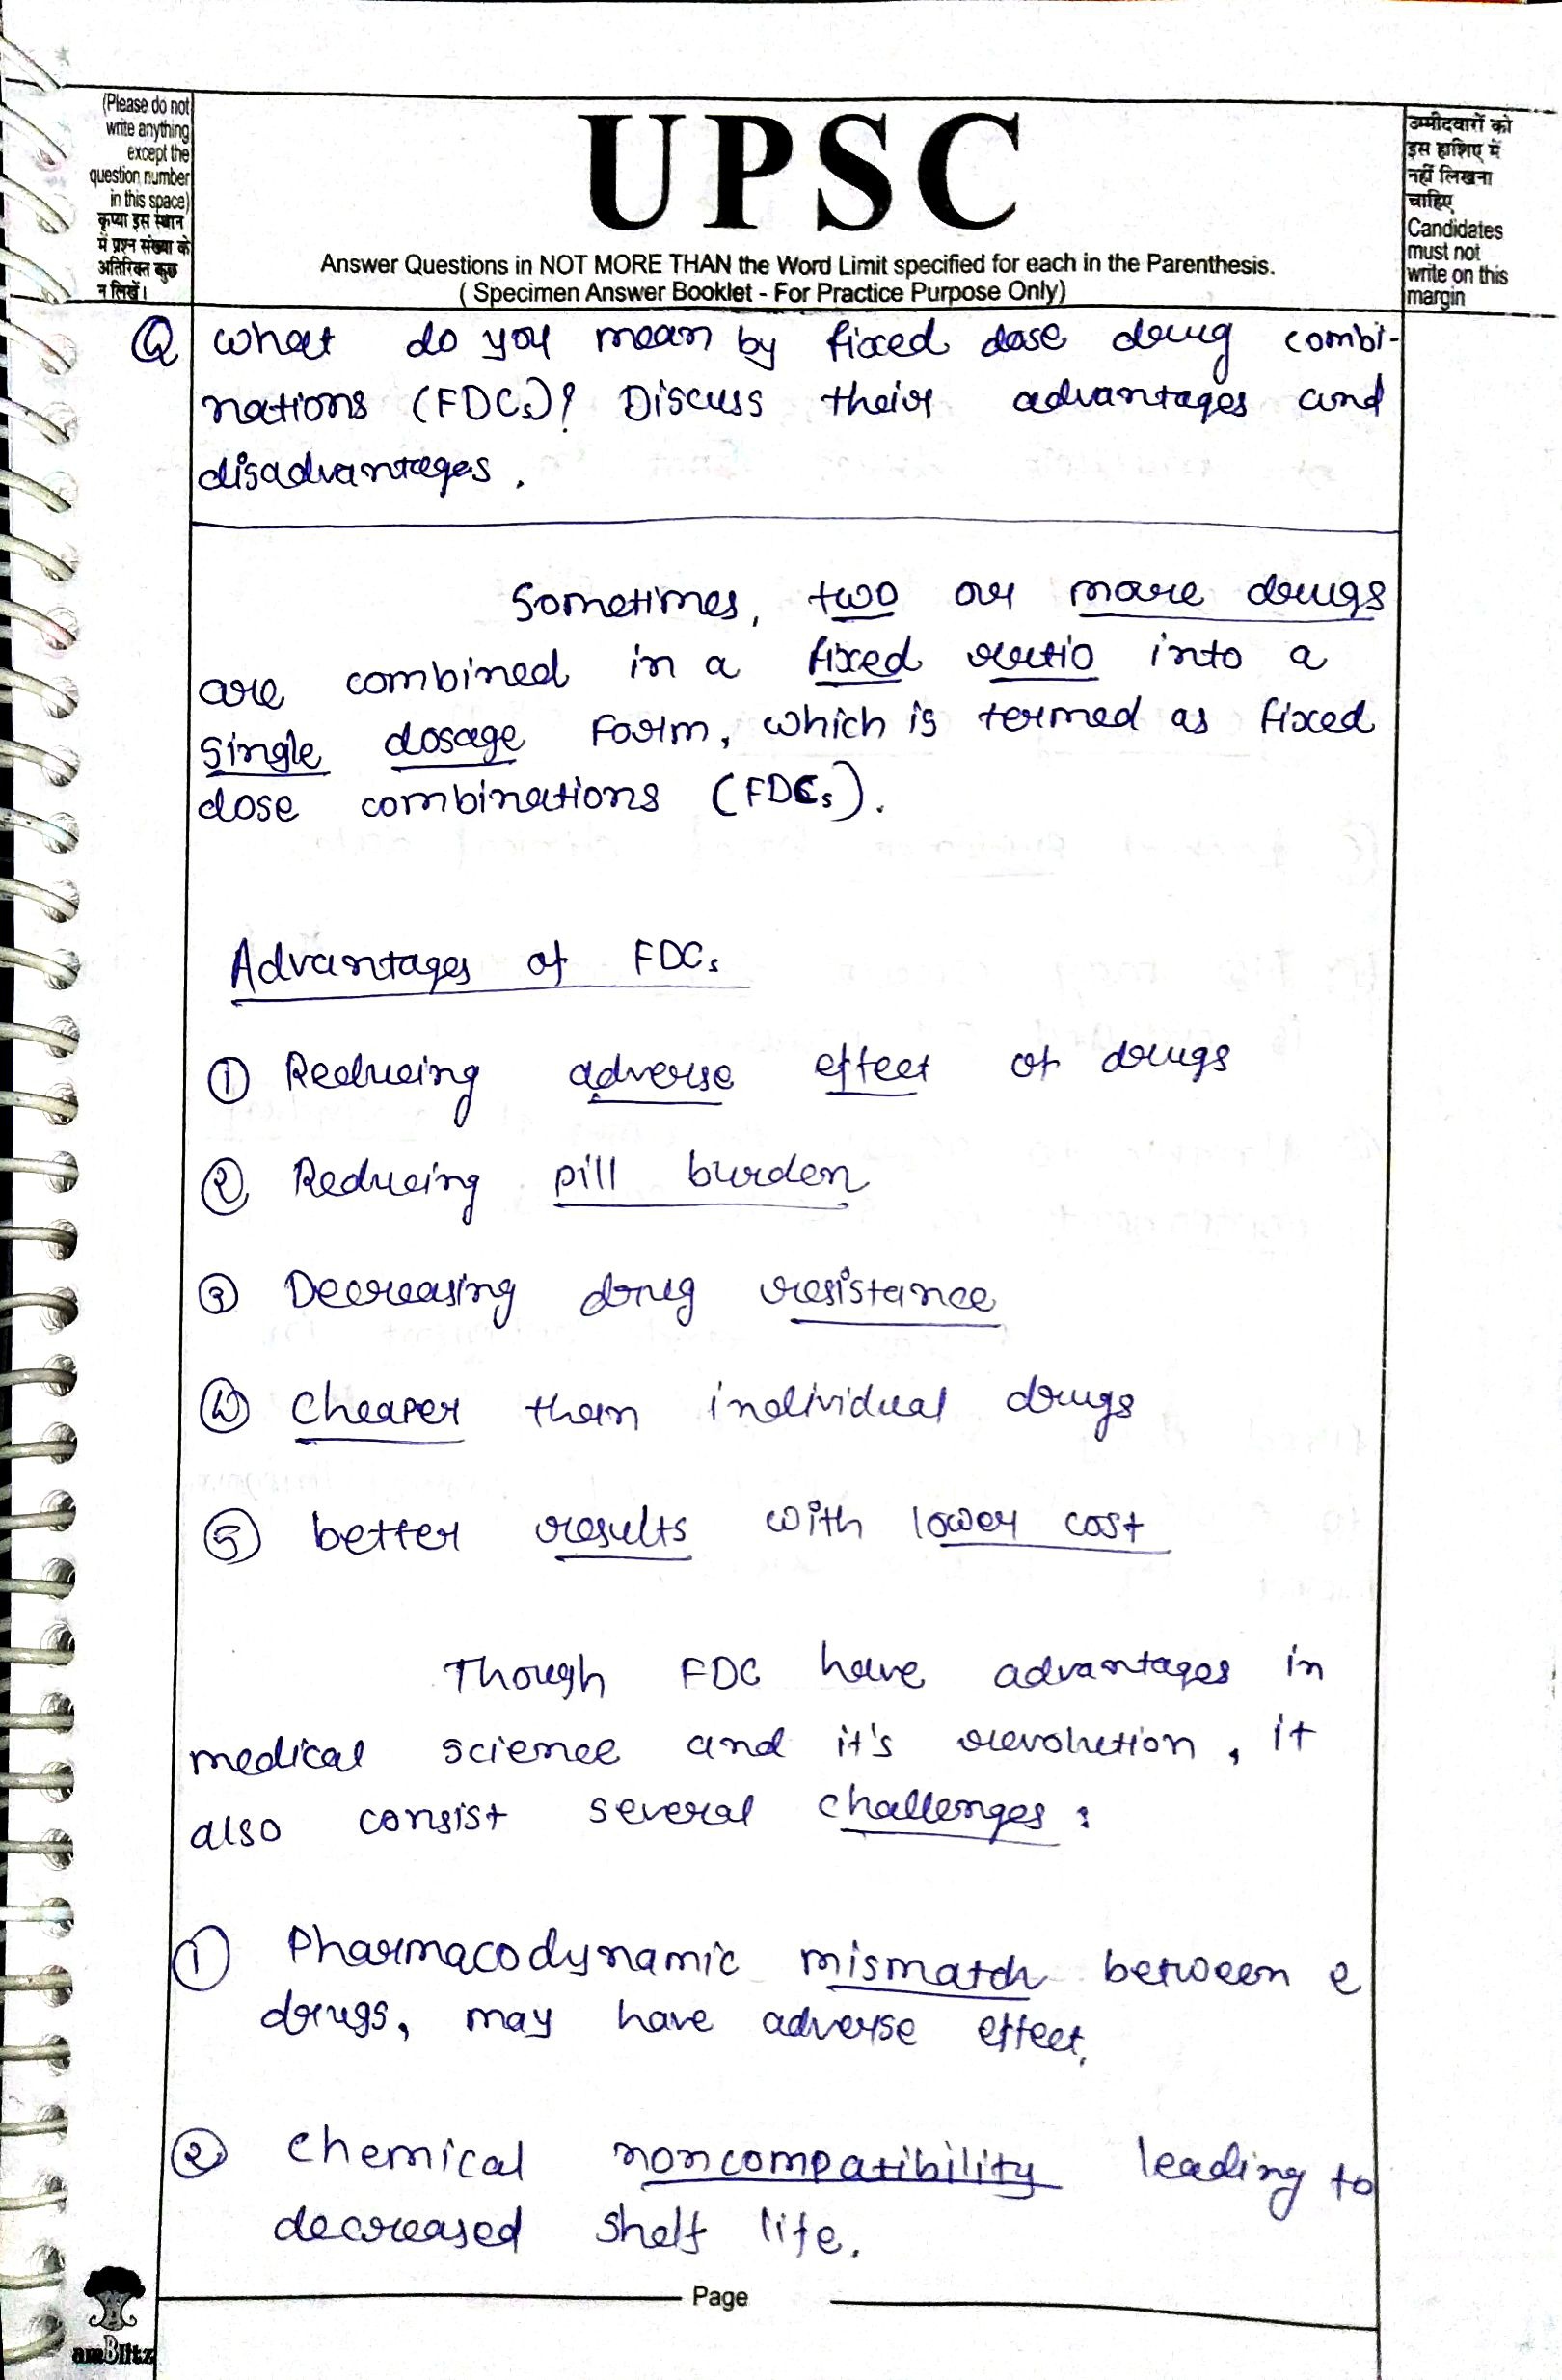 (Please do not
write anything
except the
question number
in this space)
कृप्या इस स्थान
में प्रश्न संख्या के
अतिरिक्त कुछ
न लिखें।
UPSC
Answer Questions in NOT MORE THAN the Word Limit specified for each in the Parenthesis.
( Specimen Answer Booklet - For Practice Purpose Only)
उम्मीदवारों को
इस हाशिए में
नहीं लिखना
चाहिए
Candidates
must not
write on this
margin
Q What do you mean by fixed dose drug combi-
nations (FDCs)? Discuss their advantages and
disadvantages.
Sometimes, two or more drugs
are combined in a fixed ratio into a
single dosage form, which is termed as fixed
dose combinations (FDCs).
Advantages of FDCs
① Reducing adverse effect of drugs
② Reducing pill burden
③ Decreasing drug resistance
④ Cheaper than individual drugs
⑤ better results with lower cost
Though FDC have advantages in
medical science and it's revolution, it
also consist several challenges:
① Pharmacodynamic mismatch between 2
drugs, may have adverse effect.
② Chemical noncompatibility leading to
decreased shelf life.
Page
amBlitz